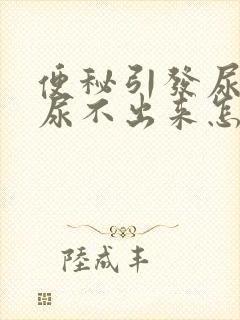 便秘引發尿
尿不出来怎
陸成丰